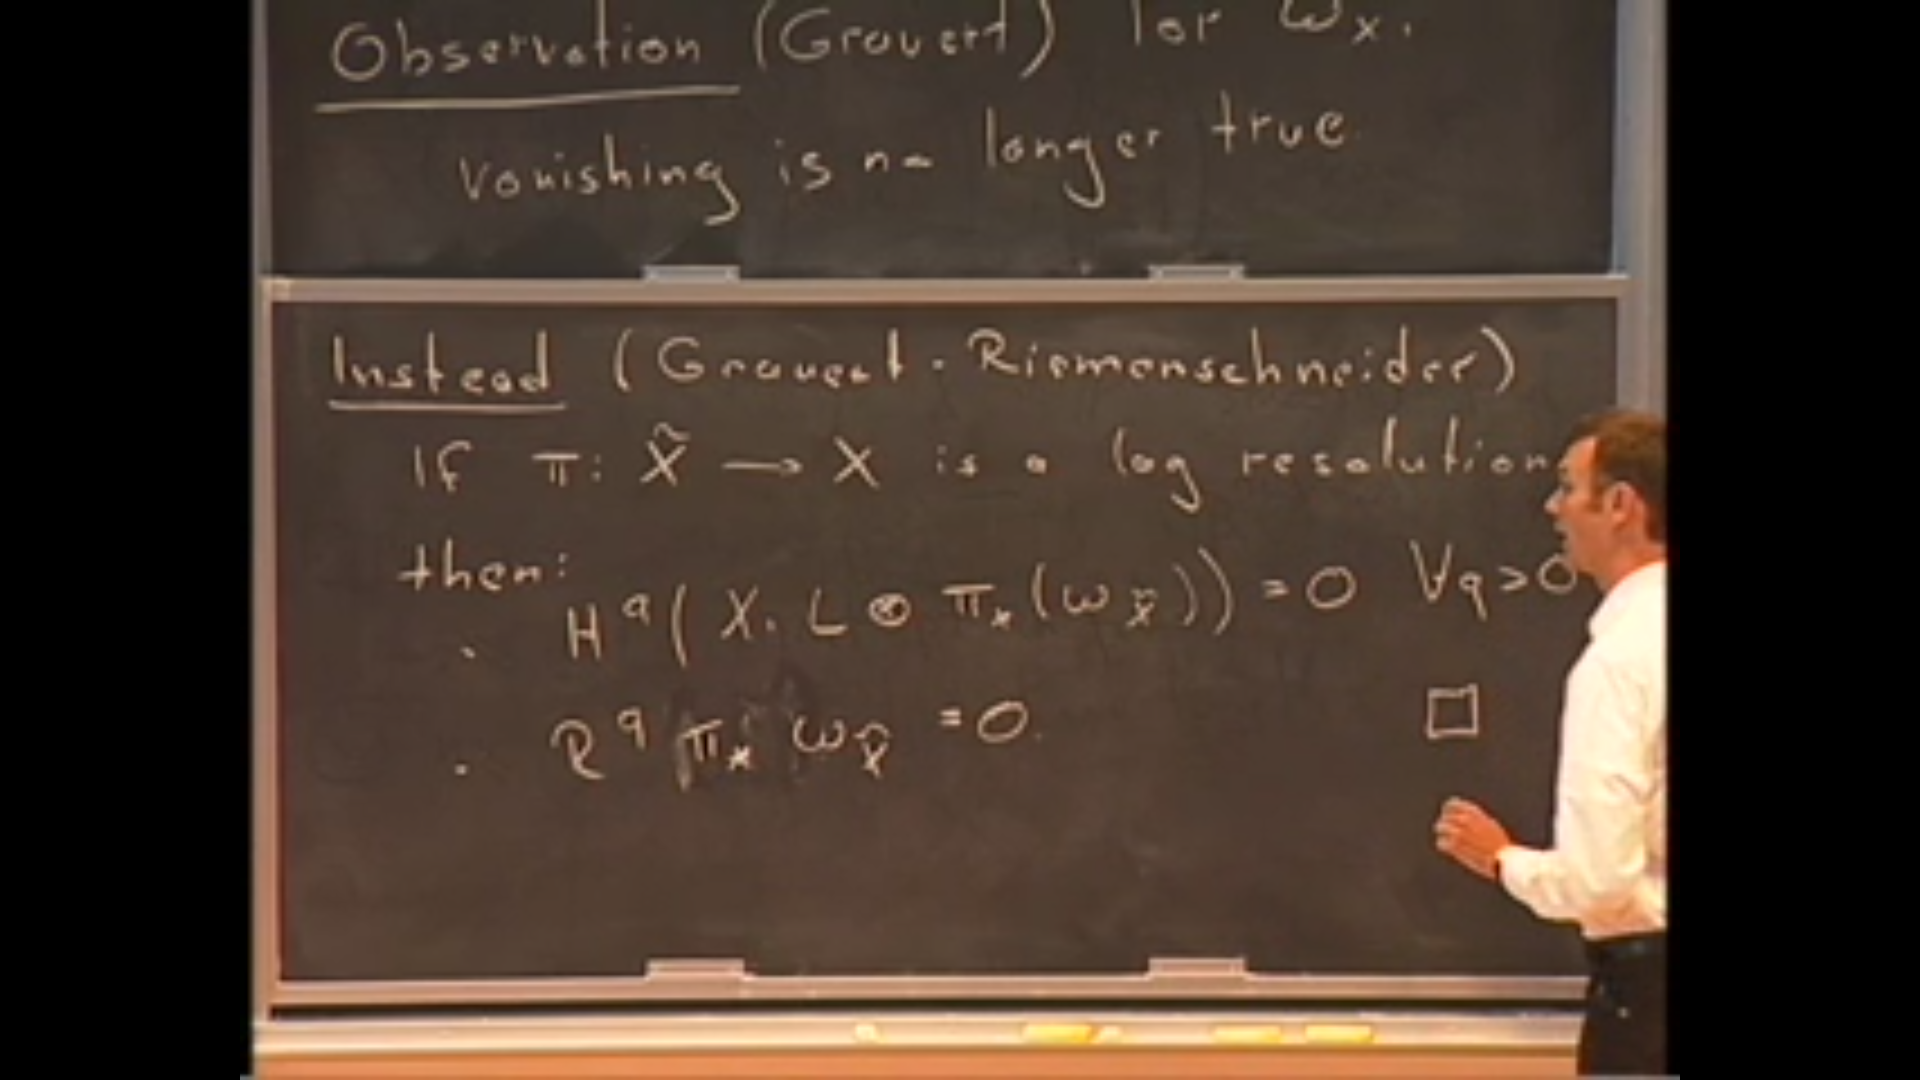 Observation (Grauert) for ω_X.
vanishing is no longer true.
Instead (Grauert - Riemenschneider)
If π: X̃ → X is a log resolution
then:
· H^q(X, L ⊗ π_*(ω_X̃)) = 0 ∀q>0
· R^q π_* ω_X̃ = 0. □